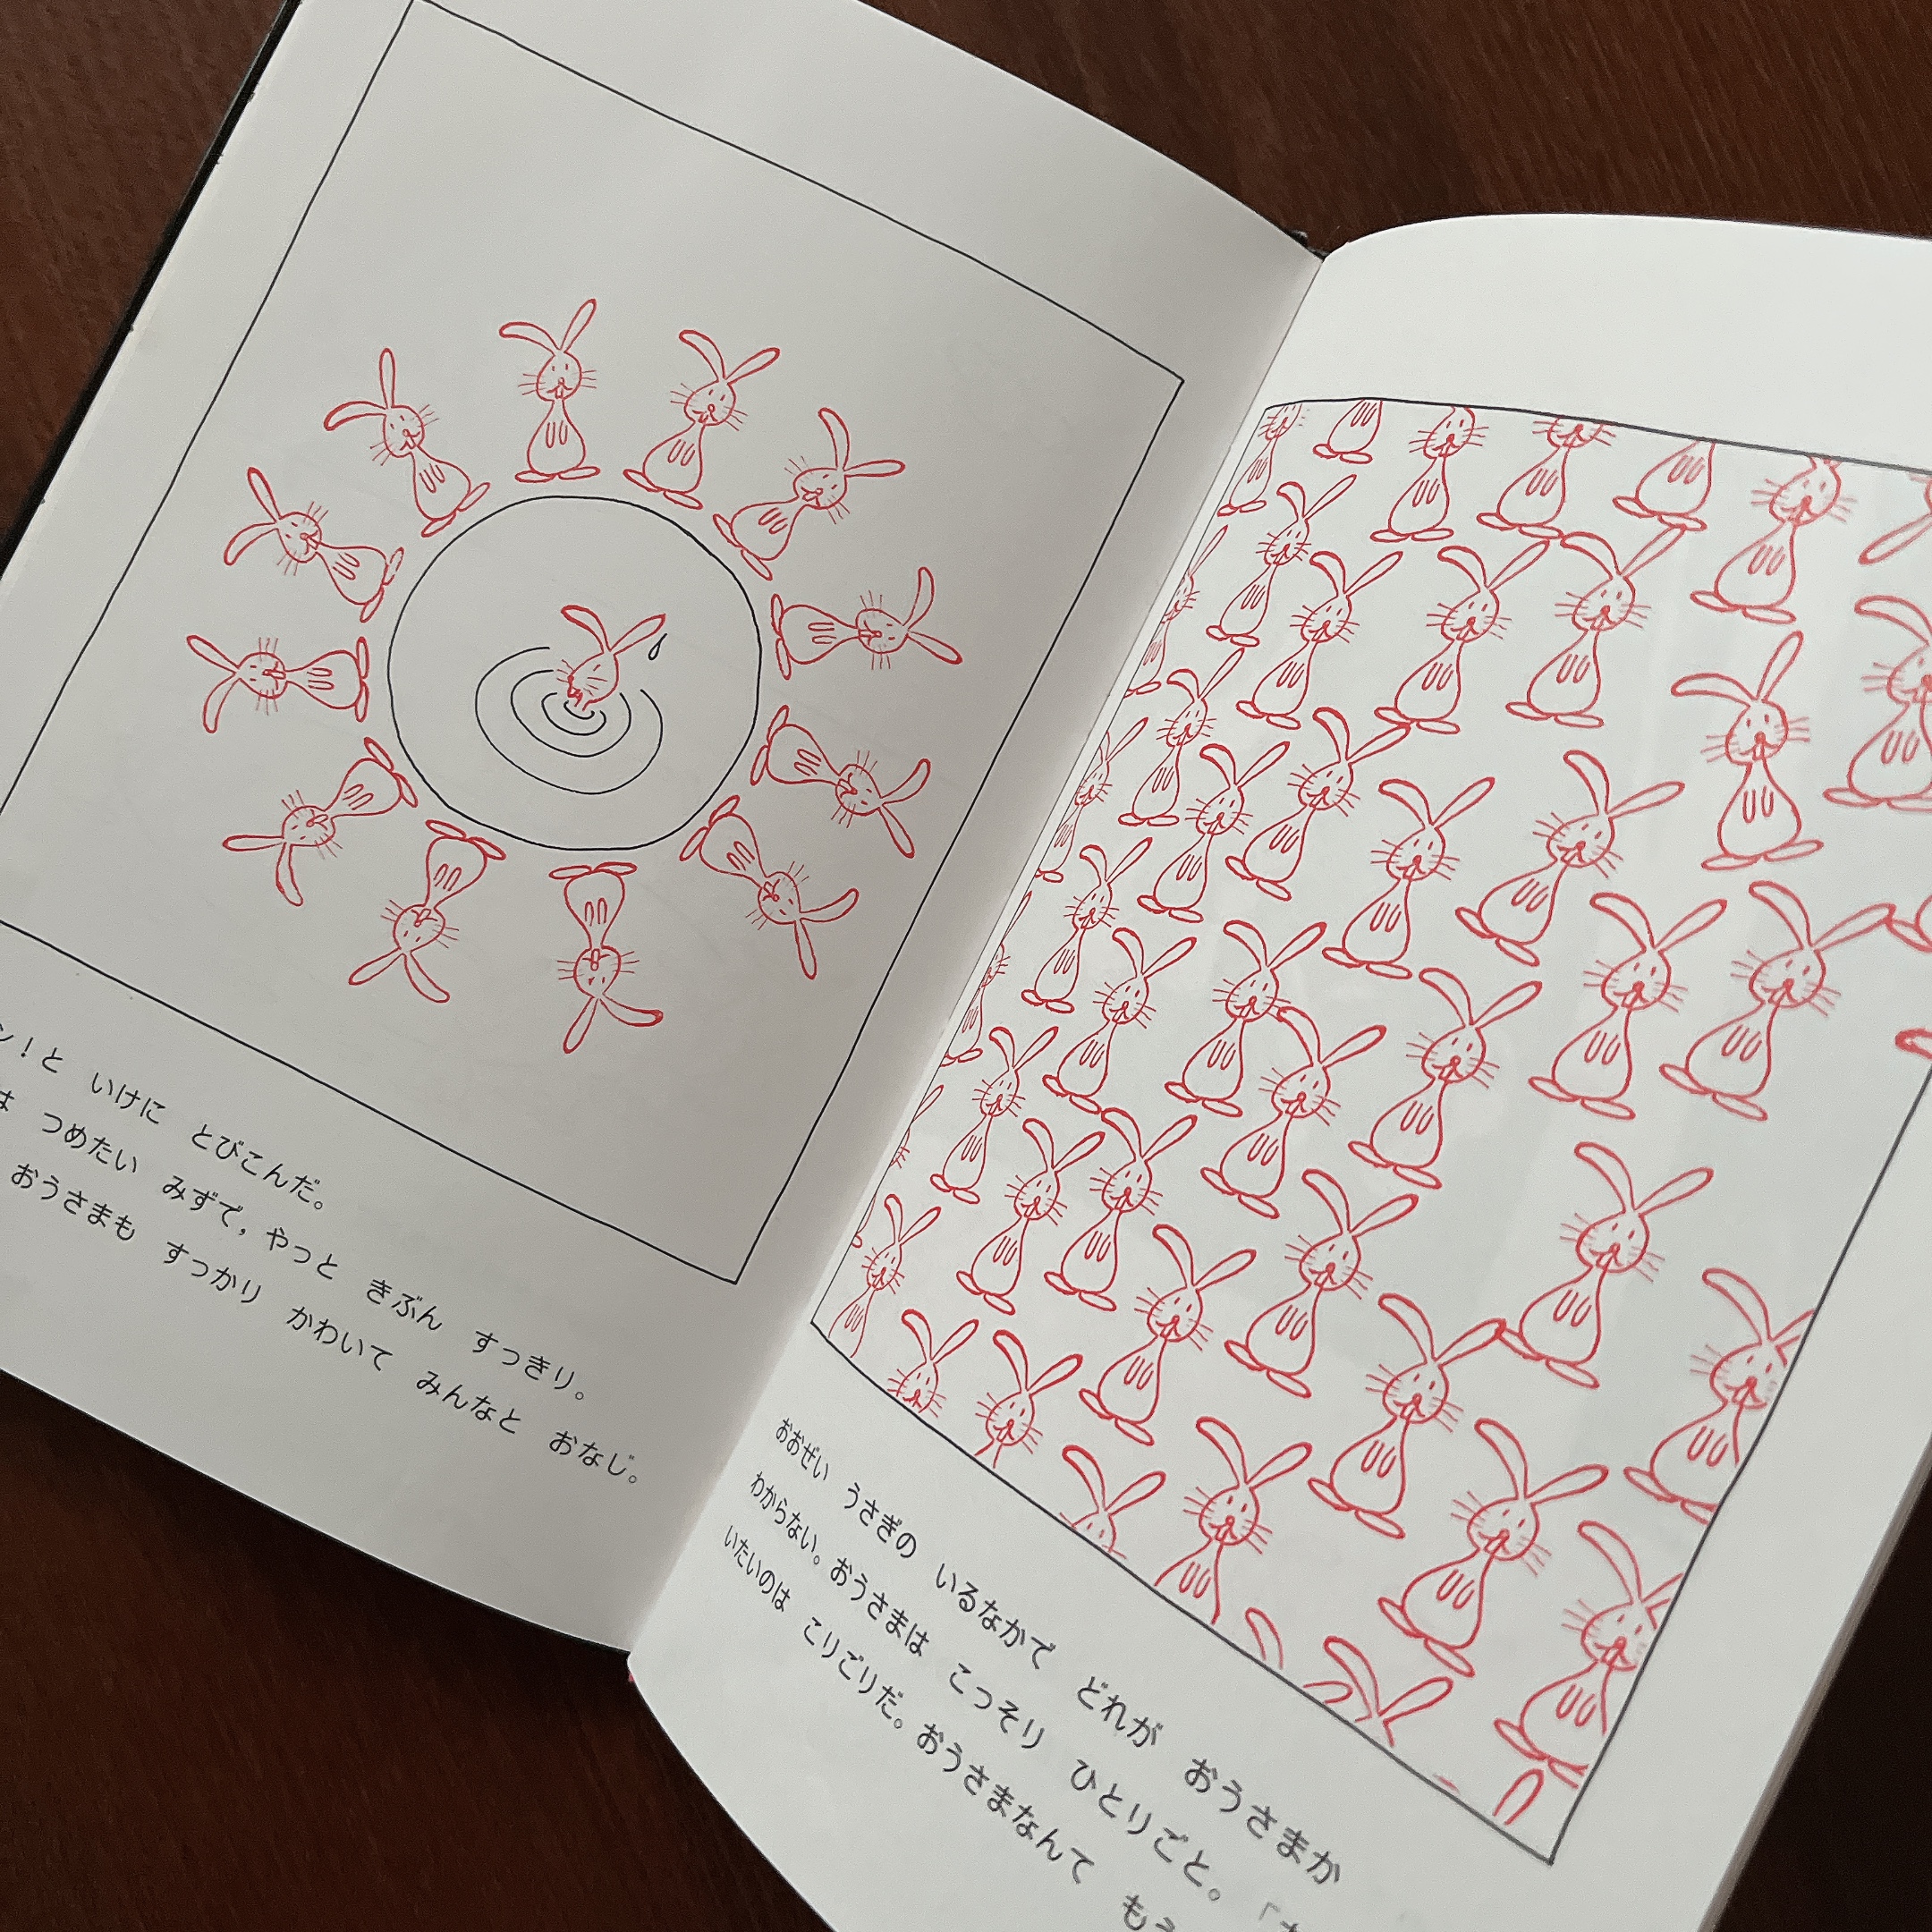 ン！と　いけに　とびこんだ。
は　つめたい　みずで，やっと　きぶん　すっきり。
おうさまも　すっかり　かわいて　みんなと　おなじ。
おおぜい　うさぎの　いるなかで　どれが　おうさまか
わからない。おうさまは　こっそり　ひとりごと。「
いたいのは　こりごりだ。おうさまなんて　もう